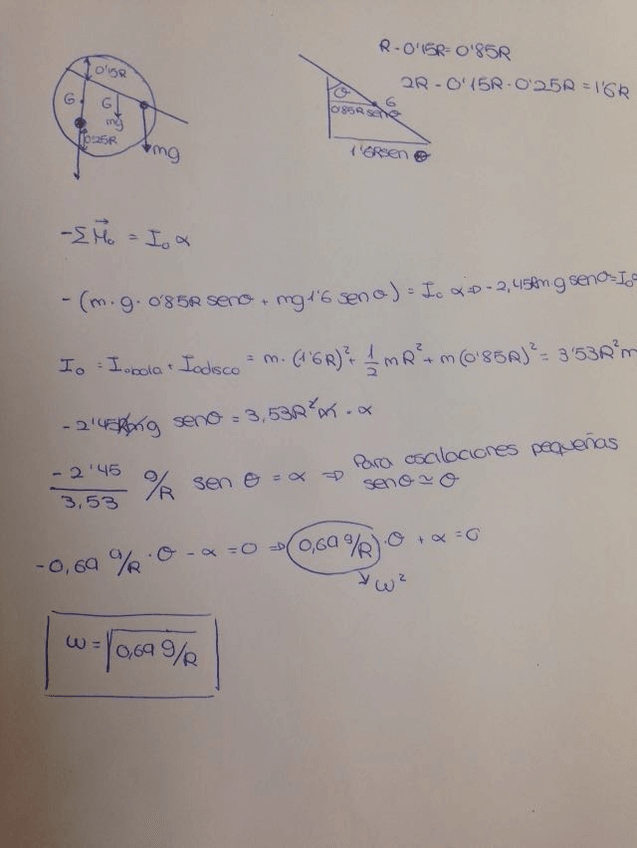 R - 0'15R = 0'85R
2R - 0'15R - 0'25R = 1'6R
0'15R
G
G
mg
0'25R
mg
θ
G
0'85R senθ
1'6R sen θ
- Σ M⃗₀ = I₀ α
- (m · g · 0'85R senθ + mg 1'6 sen θ) = I₀ α ⇒ - 2,45Rm g senθ = I₀
I₀ = I₀bola + I₀disco = m · (1'6R)² + 1/2 mR² + m(0'85R)² = 3'53R² m
- 2'45Rmg senθ = 3,53R² m · α
- 2'45 / 3,53 g/R sen θ = α ⇒ Para oscilaciones pequeñas
sen θ ≃ θ
- 0,69 g/R · θ - α = 0 ⇒ 0,69 g/R · θ + α = 0
ω²
ω = √0,69 g/R